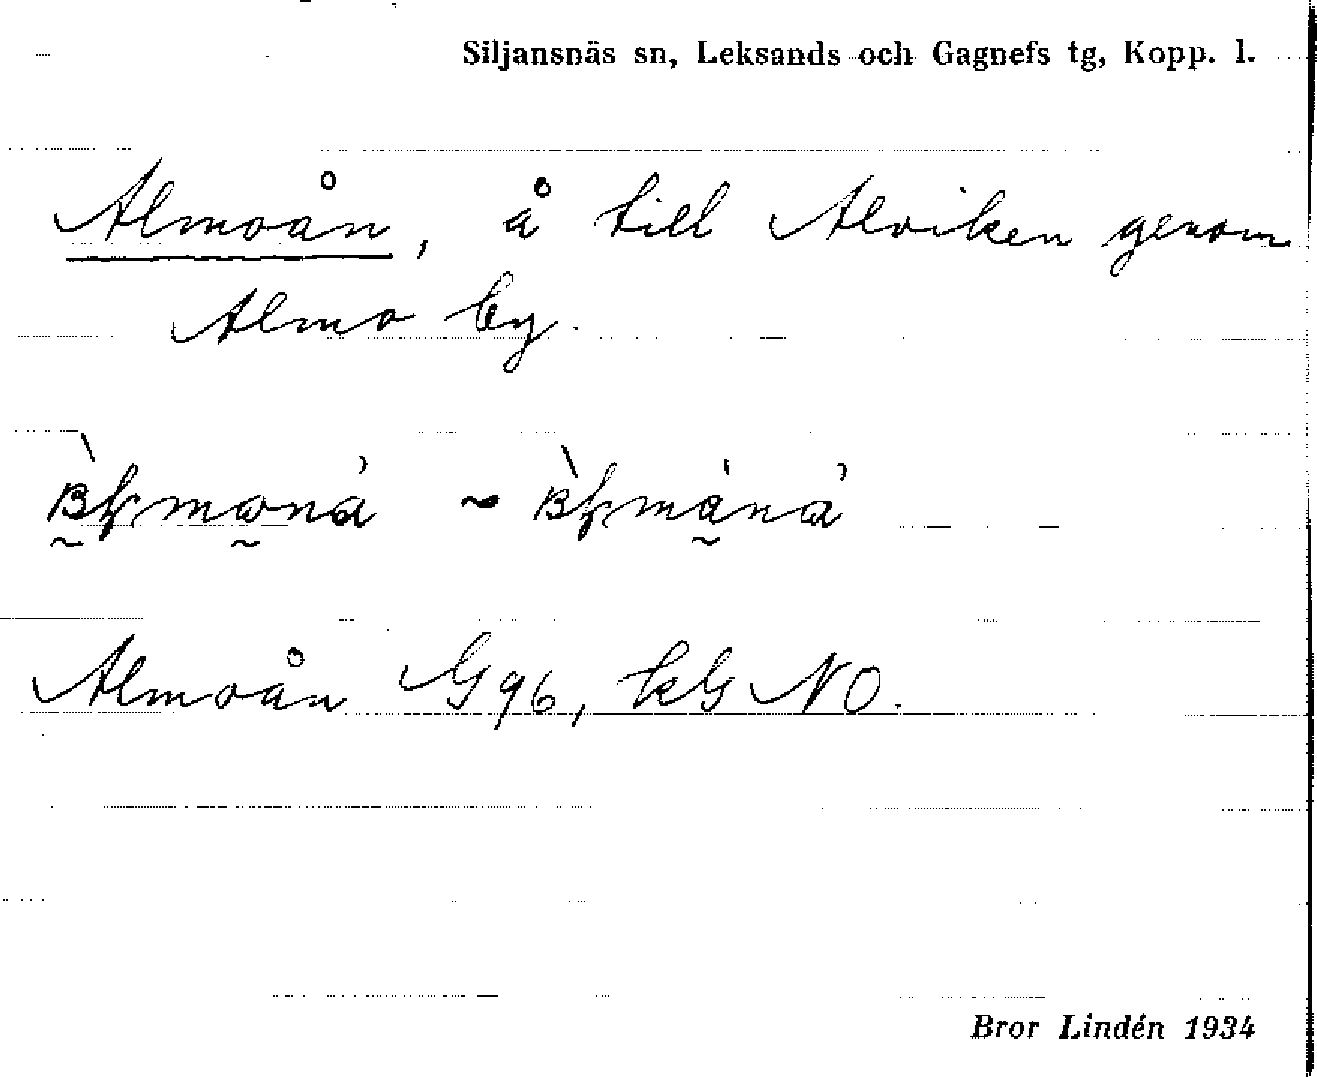 Siljansnäs sn, Leksands och Gagnefs tg, Kopp. l.
Almoån, å till Alviken genom
Almo by.
~
Almoån G 96, kG NO.
Bror Lindén 1934